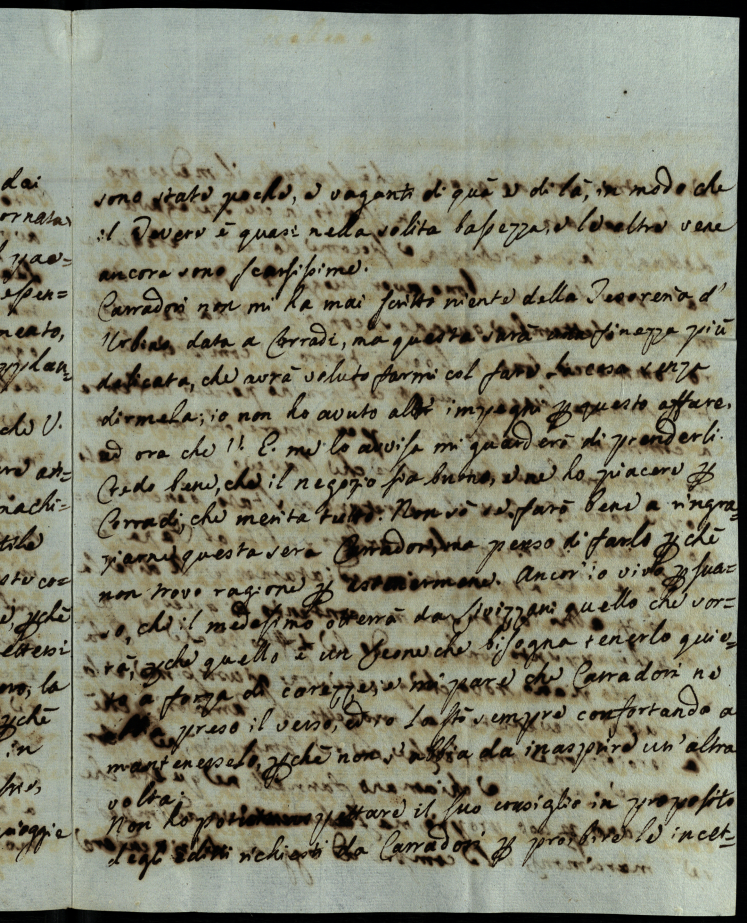 dai
ornata
mento,
che V.
in
sono state poche, e vaganti di quà e di là, in modo che
il Tevere è quasi nella solita bassezza, e le altre vene
ancora sono scarsissime.
Carradori non mi ha mai scritto niente della Tesoreria d'
Urbino data a Corradi, ma questa sarà una finezza più
delicata, che avrà voluto farmi col fare la cosa senza
dirmela; io non ho avuto altri impegni ꝑ questo affare,
ed ora che V. E. me lo avvisa mi guarderò di prenderli.
Credo bene, che il negozio sia buono, e ne ho piacere ꝑ
Corradi, che merita tutto. Non sò se farò bene a ringra=
ziarne questa sera Carradori, ma penso di farlo ꝑchè
non trovo ragione ꝑ . Ancor'io vivo ꝑsua=
so, che il medesimo otterrà da Stvizzani quello che vor=
rà, ꝑchè quello è un Leone che bisogna tenerlo quie=
to a forza di carezze, e mi pare che Carradori ne
preso il verso, ed io lo stò sempre confortando a
mantenesselo, ꝑchè non s'abbia da inasprire un'altra
volta.
Non ho il suo consiglio in proposito
degli Editti richiesti da Carradori ꝑ proibire le incet=